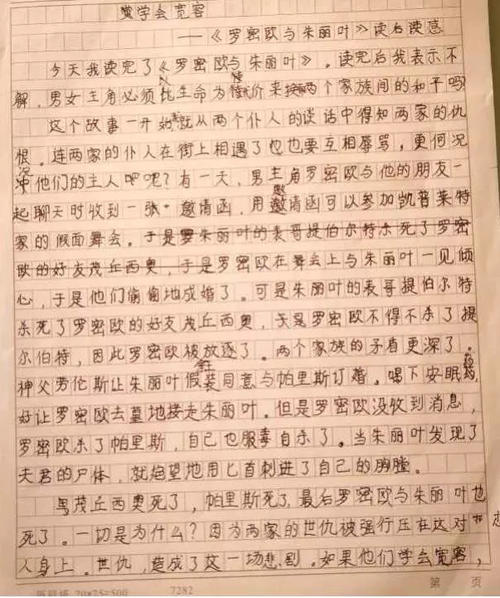 要学会宽容
——《罗密欧与朱丽叶》读后读感
今天我读完了《罗密欧与朱丽叶》。读完后我表示不
解,男女主角必须比生命为代价来换两个家族间的和平吗
这个故事一开始就从两个仆人的谈话中得知两家的仇
恨。连两家的仆人在街上相遇了也也要互相辱骂,更何况
他们的主人吧呢?有一天,男主角罗密欧与他的朋友一
起聊天时收到一张邀请函,用邀请函可以参加凯普莱特
家的假面舞会。于是罗朱丽叶的表哥提伯尔特杀死了罗密
欧的好友茂丘西奥,于是罗密欧在舞会上与朱丽叶一见倾
心,于是他们偷偷地成婚了。可是朱丽叶的表哥提伯尔特
杀死了罗密欧的好友茂丘西奥,于是罗密欧不得不杀了提
尔伯特,因此罗密欧被放逐了。两个家族的矛盾更深了。
神父劳伦斯让朱丽叶假装同意与帕里斯订婚。喝下安眠药
好让罗密欧去墓地接走朱丽叶。但是罗密欧没收到消息,
罗密欧杀了帕里斯,自己也服毒自杀了。当朱丽叶发现了
夫君的尸体,就绝望地用匕首刺进了自己的胸膛。
茂丘西奥死了,帕里斯死了,最后罗密欧与朱丽叶也
死了。一切是为什么?因为两家的世仇被强行压在这对恋
人身上。世仇,造成了这一场悲剧。如果他们学会宽容,
20*25=500
7282
第 页